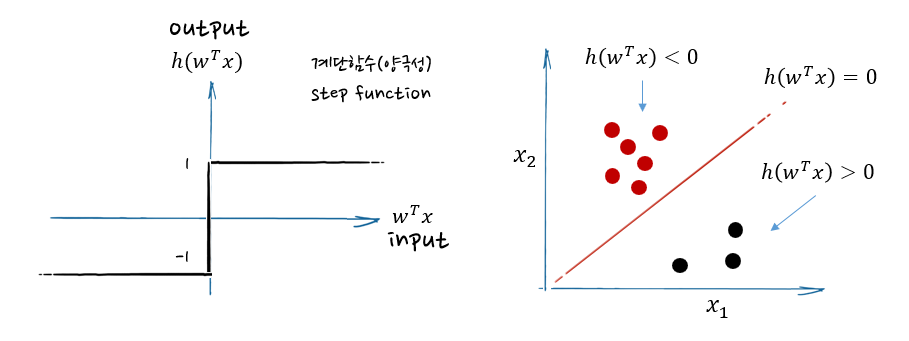 output
h(wᵀx)
계단함수(양극성)
step function
1
-1
wᵀx
input
h(wᵀx) < 0
h(wᵀx) = 0
x₂
h(wᵀx) > 0
x₁